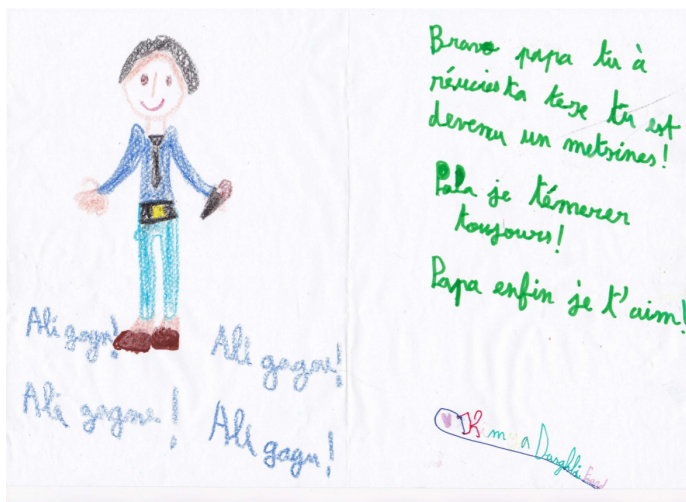 Ali gagn!
Ali gagne!
Ali gagne!
Ali gagn!
Bravo papa tu à
réucies ta tese tu est
devenu un metsines!
Papa je témerer
toujours!
Papa enfin je t'aim!
Kimya Darghli